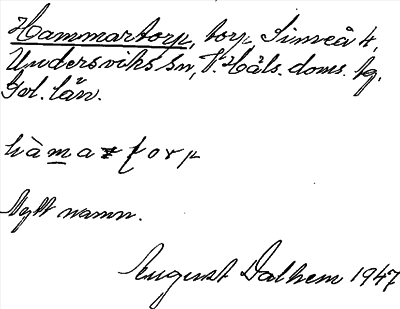 Hammartorp, torp, Simeå 4,
Undersviks sn, V. Häls. doms. tg.
Gvl. län.
hàmartorp
Nytt namn.
August Dalhem 1947